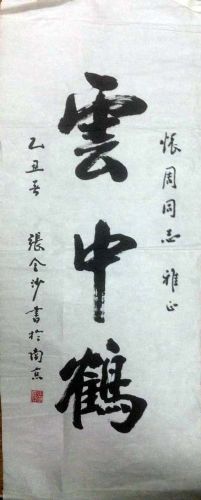 怅周同志雅正
雲中鶴
乙丑春
張金沙書於南京